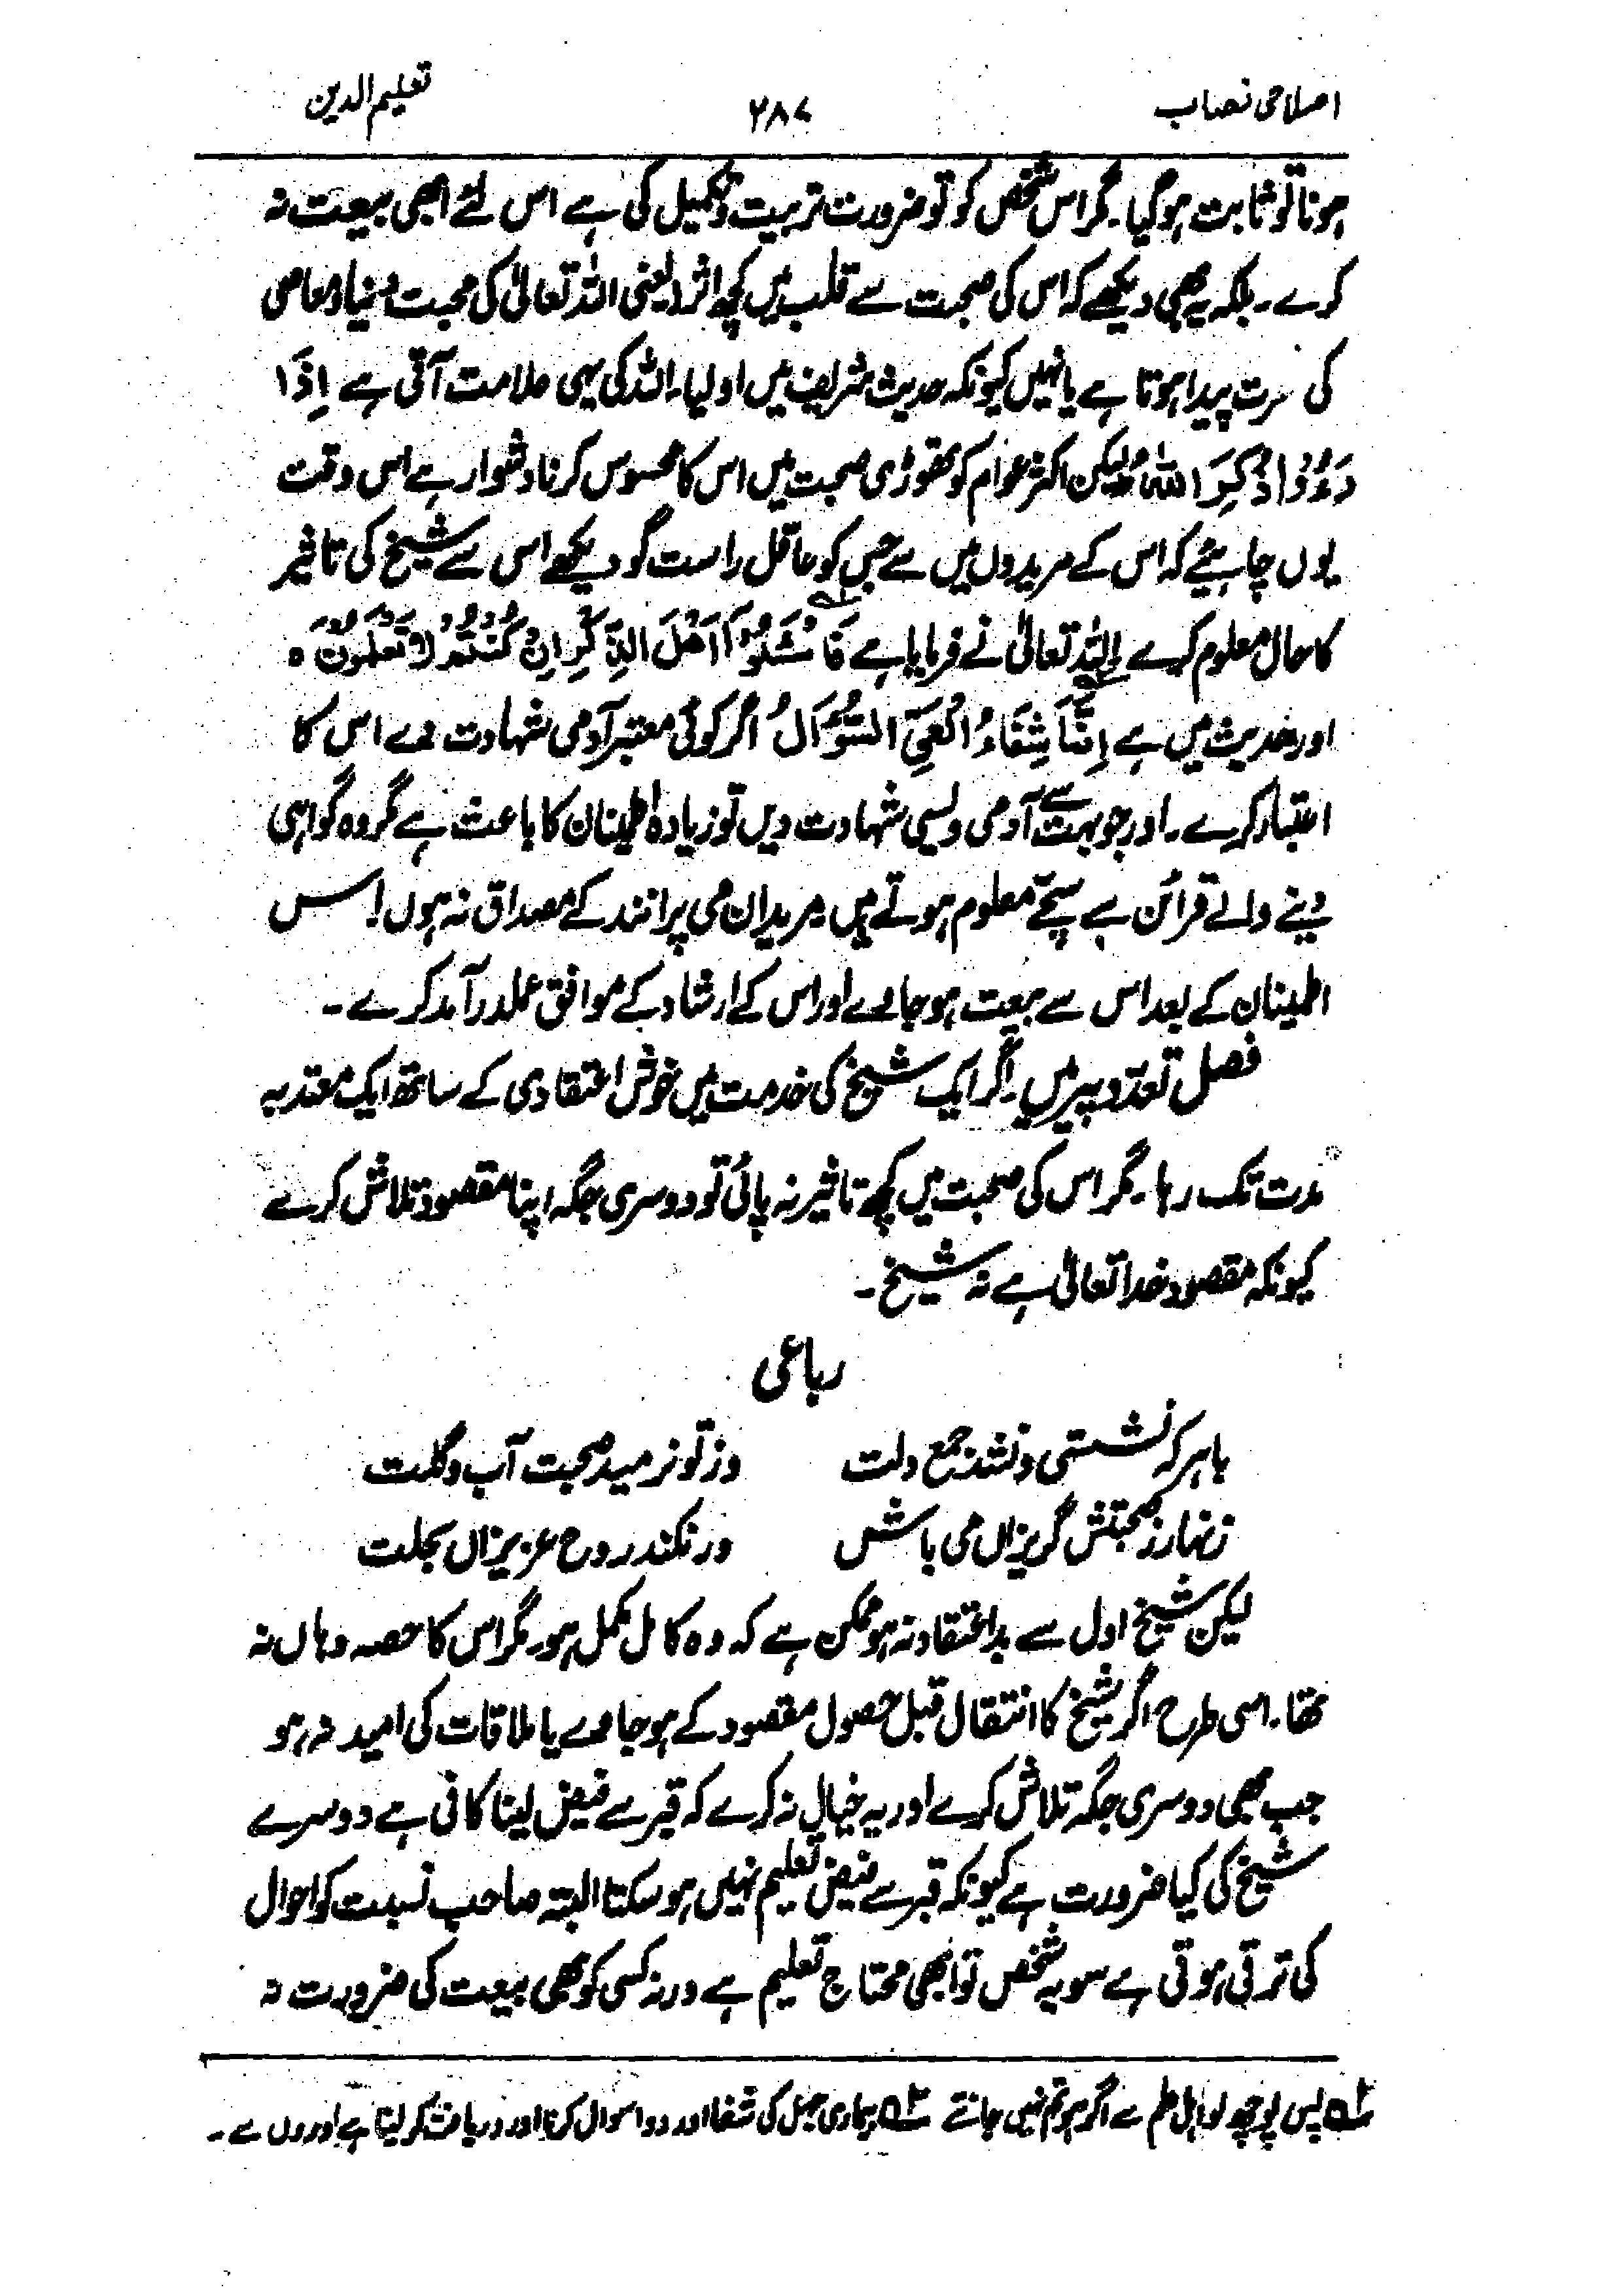 اصلاحی نصاب
۲۸۷
تعلیم الدین
ہونا تو ثابت ہوگیا۔ مگر اس شخص کو تو ضرورت تربیت و تکمیل کی ہے اس لئے ابھی بیعت نہ
کرے۔ بلکہ یہ بھی دیکھے کہ اس کی صحبت سے قلب میں کچھ اثر (یعنی اللہ تعالیٰ کی محبت دنیا و معاصی
کی پیدا ہوتا ہے یا نہیں کیونکہ حدیث شریف میں اولیاء اللہ کی یہی علامت آئی ہے اِذَا
رَءُوْا ذُکِرَ اللّٰہُ لیکن اکثر عوام کو تھوڑی صحبت میں اس کا محسوس کرنا دشوار ہے اس وقت
یوں چاہیئے کہ اس کے مریدوں میں سے جس کو عاقل راست گو دیکھے اس سے شیخ کی تاثیر
کا حال معلوم کرے اللہ تعالیٰ نے فرمایا ہے فَاسْئَلُوْٓا اَھْلَ الذِّکْرِ اِنْ کُنْتُمْ لَا تَعْلَمُوْنَ ہ
اور حدیث میں ہے اِنَّمَا شِفَاءُ الْعَیِّ السُّؤَالُ اگر کوئی معتبر آدمی شہادت دے اس کا
اعتبار کرے۔ اور جو بہت سے آدمی ویسی شہادت دیں تو زیادہ اطمینان کا باعث ہے مگر وہ گواہی
دینے والے قرائن سے سچے معلوم ہوتے ہیں مریدان می پرانند کے مصداق نہ ہوں! اس
اطمینان کے بعد اس سے بیعت ہو جاوے اور اس کے ارشاد کے موافق عملدرآمد کرے۔
فصل تعدد پیر میں۔ اگر ایک شیخ کی خدمت میں خوش اعتقادی کے ساتھ ایک معتدبہ
مدت تک رہا۔ مگر اس کی صحبت میں کچھ تاثیر نہ پائی تو دوسری جگہ اپنا مقصود تلاش کرے
کیونکہ مقصود خدا تعالیٰ ہے نہ شیخ۔
رباعی
باہر کہ نشستی و نشد جمع دلت وز تو نرمید صحبت آب و گلت
زنہار ز صحبتش گریزاں می باش ورنہ نکند روح عزیزاں بحلت
لیکن شیخ اول سے بداعتقاد نہ ہو ممکن ہے کہ وہ کامل مکمل ہو۔ مگر اس کا حصہ وہاں نہ
تھا۔ اسی طرح اگر شیخ کا انتقال قبل حصول مقصود کے ہو جاوے یا ملاقات کی امید نہ ہو
جب بھی دوسری جگہ تلاش کرے اور یہ خیال نہ کرے کہ قبر سے فیض لینا کافی ہے دوسرے
شیخ کی کیا ضرورت ہے کیونکہ قبر سے فیض تعلیم نہیں ہوسکتا البتہ صاحب نسبت کو احوال
کی ترقی ہوتی ہے سو یہ شخص تو ابھی محتاج تعلیم ہے ورنہ کسی کو بھی بیعت کی ضرورت نہ
۱ھ پس پوچھ لو اہل علم سے اگر ہو تم نہیں جانتے ۲ھ بیماری جہل کی شفا اور دوا سوال کرنا اور دریافت کرلینا ہے اوروں سے۔